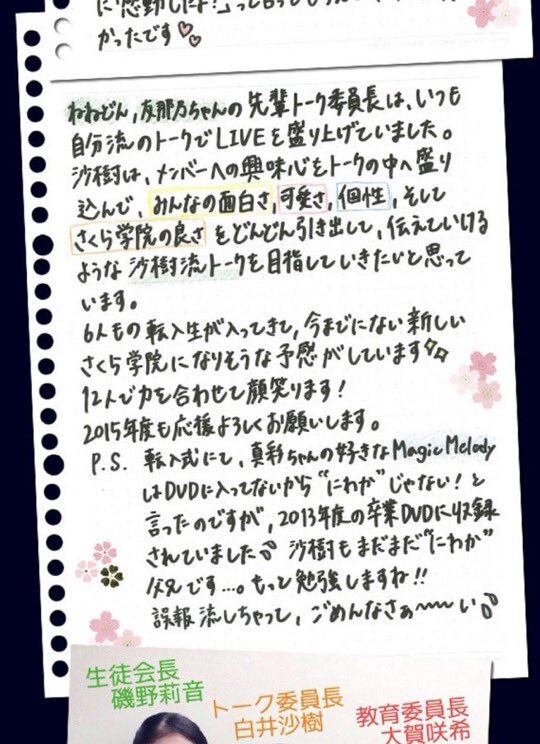 に感動したよ！」って言ってもら
かったです
ねねどん，友那乃ちゃんの先輩トーク委員長は、いつも
自分流のトークでLIVEを盛り上げていました。
沙樹は、メンバーへの興味心をトークの中へ盛り
込んで、みんなの面白さ，可愛さ，個性，そして
さくら学院の良さをどんどん引き出して、伝えていける
ような沙樹流トークを目指していきたいと思って
います。
6人もの転入生が入ってきて、今までにない新しい
さくら学院になりそうな予感がしています
12人で力を合わせて顔笑ります！
2015年度も応援よろしくお願いします。
P.S. 転入式にて、真彩ちゃんの好きなMagic Melody
はDVDに入ってないから"にわか"じゃない！と
言ったのですが、2013年度の卒業DVDに収録
されていました 沙樹もまだまだ"にわか"
父兄です...。もっと勉強しますね!!
誤報流しちゃって、ごめんなさぁ〜〜い
生徒会長
磯野莉音
トーク委員長
白井沙樹
教育委員長
大賀咲希